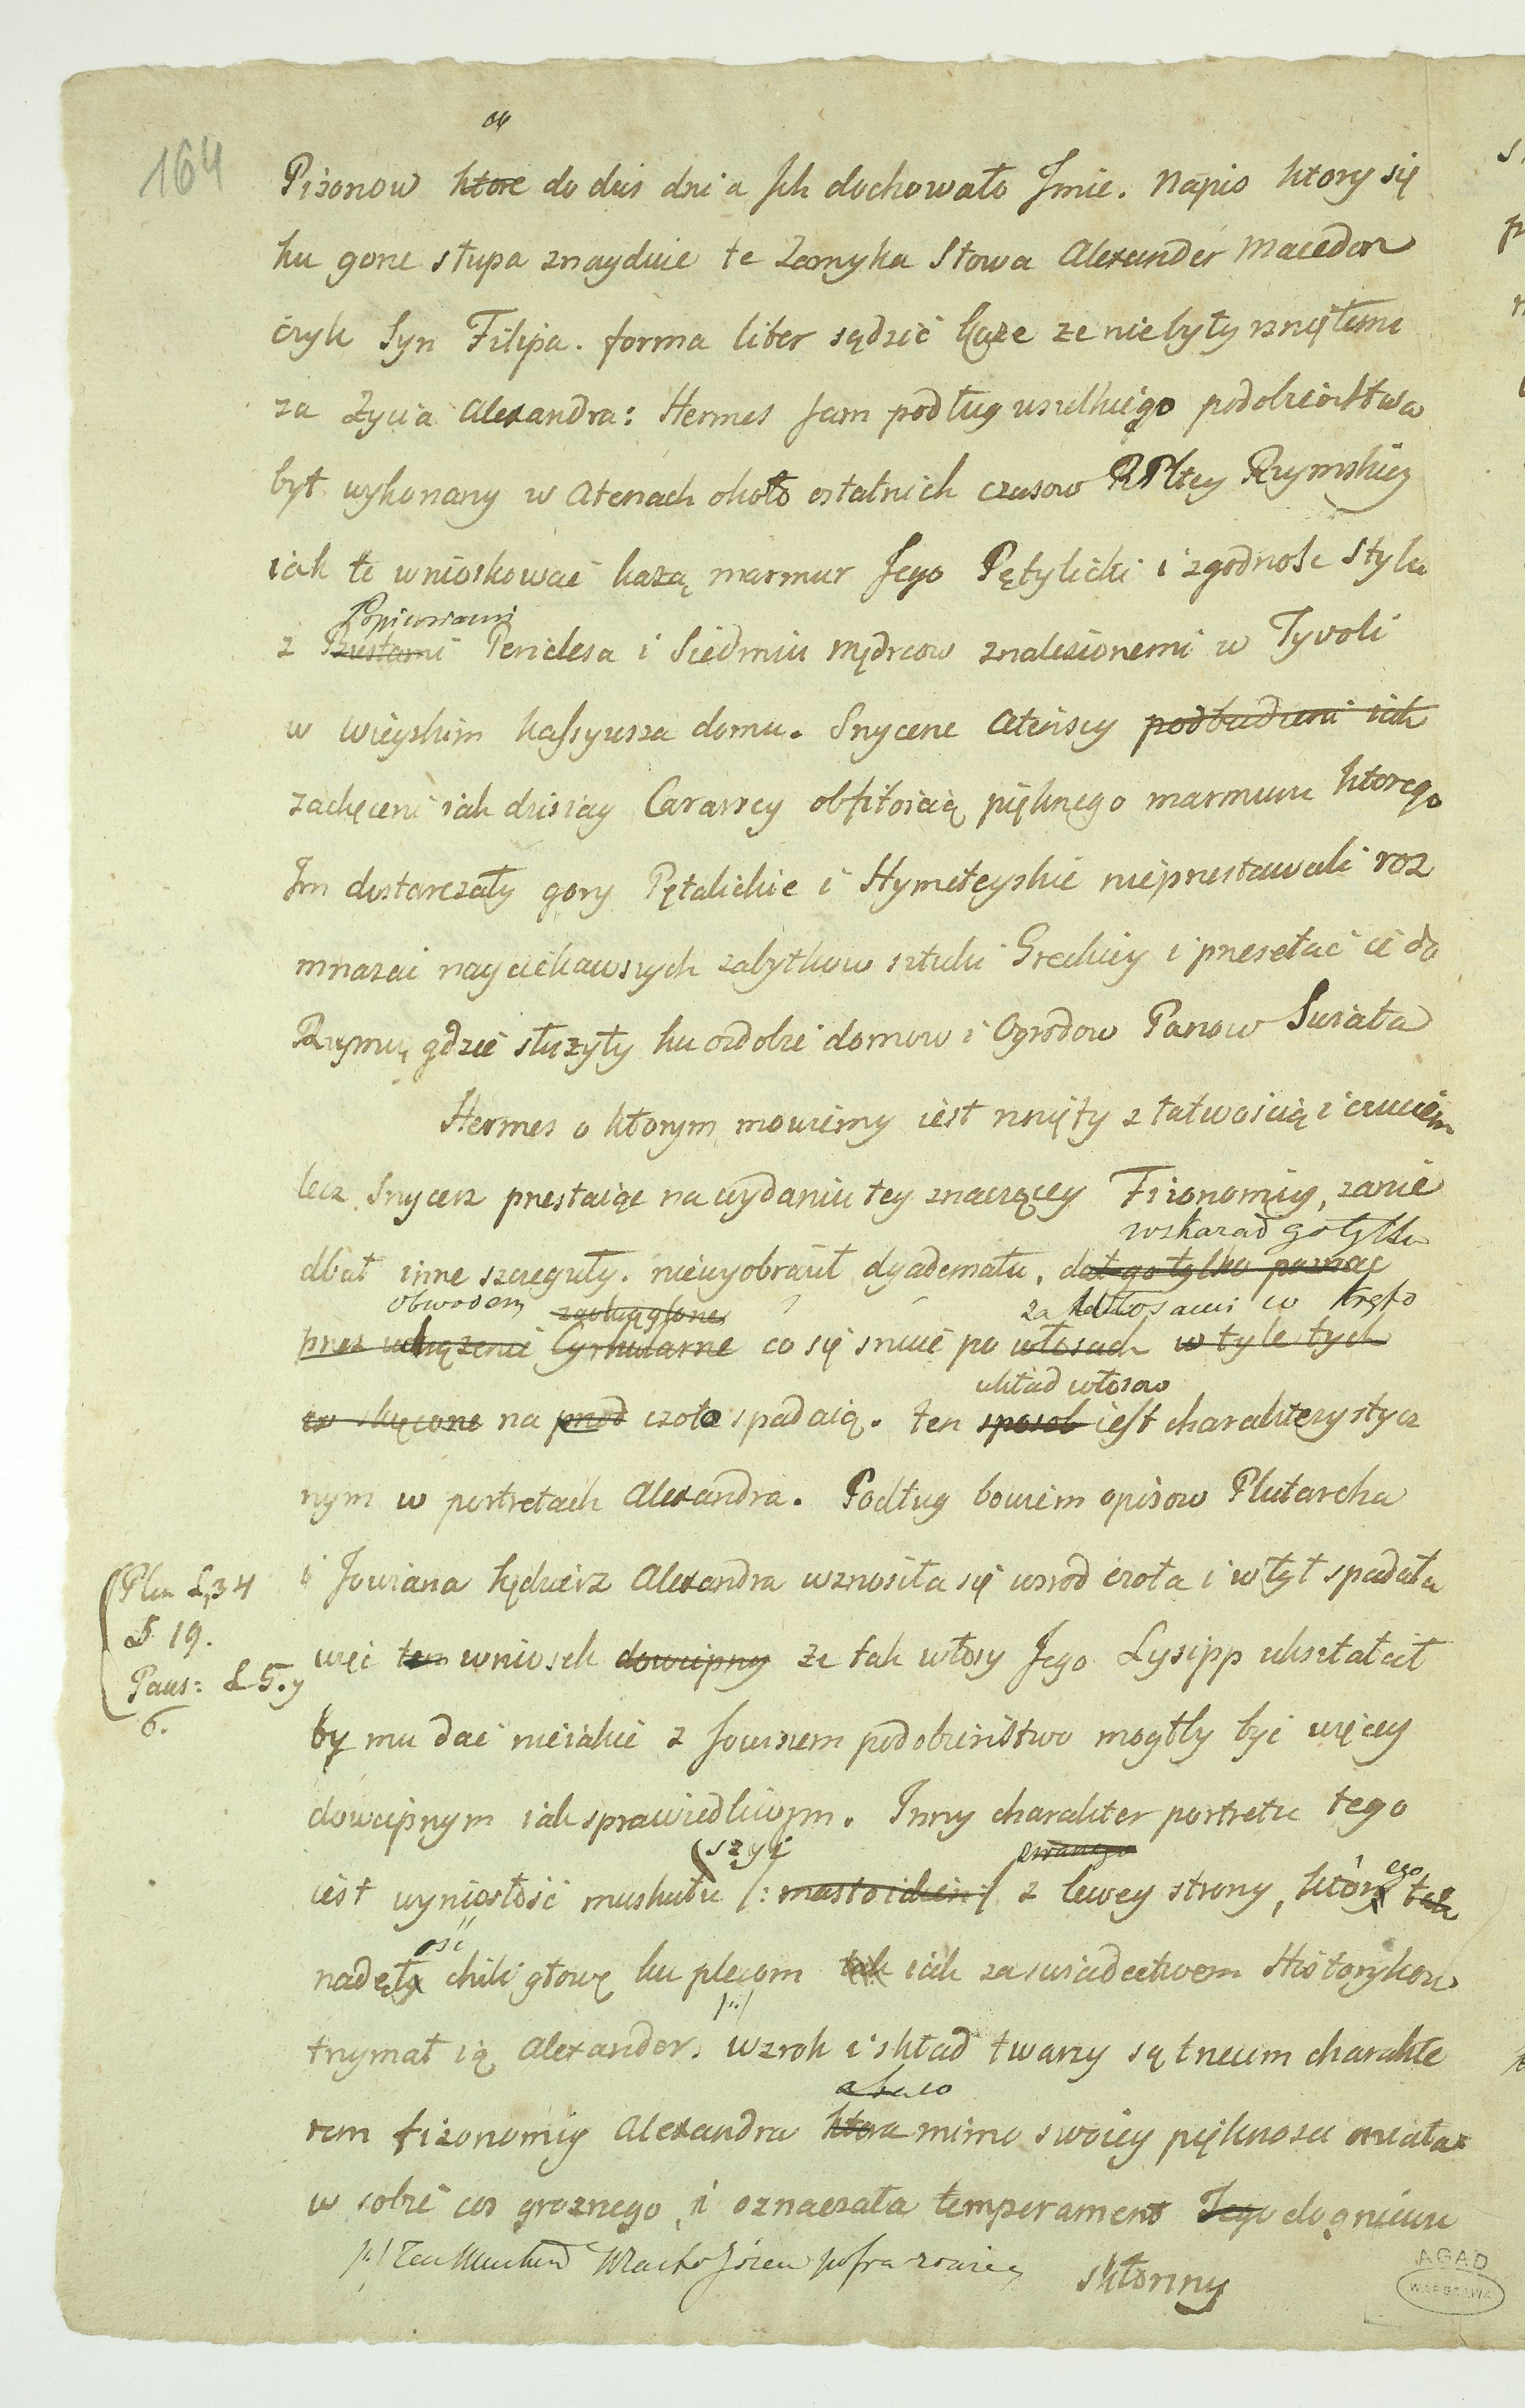 164
Pizonow ktore do dziś dnia Ich dochowało Jmie. Napis ktory się
ku gorze słupa znayduie te zamyka Słowa Alexander Macedon
czyk Syn Filipa. forma liter sądzić każe ze niebyły rznięteme
za życia Alexandra: Hermes sam podług wszelkiego podobieństwa
był wykonany w Atenach około ostatnich czasow RPltey Rzymskiey
iak to wnioskować każą marmur Jego Pętylicki i zgodność Stylu
Popiersiami
z Bustami Periclesa i Siedmiu Mędrcow znalezionemi w Tyvoli
w wieyskim Kassyusza domu. Snycerze Ateńscy podbudzeni iak
zachęceni iak dzisiay Cararscy obfitością pięknego marmuru ktorego
Im dostarczały gory Pętalickie i Hymeteyskie nieprzestawali roz
mnażać nayciekawszych zabytkow sztuki Greckiey i przesełać ie do
Rzymu, gdzie służyły ku ozdobie domow i Ogrodow Panow Swiata
Hermes o ktorym mowiemy iest rznięty z łatwością i czuciem
lecz Snycerz przestaiąc na wydaniu tey znaczącey Fizonomiy, zanie
wskazał go tylko
dbał inne szczeguły. niewyobraził dyadematu, dał go tylko poznać
obwodem zaokrąglone za włosami w kręto
przez wdrążenie Cyrkularne co się snuie po włosach w tyle tych
układ włosow
co skręcone na przod czoło spadaią. ten sposob iest charakterystycz
nym w portretach Alexandra. Podług bowiem opisow Plutarcha
i Jowiana kędzierz Alexandra wznosiła się wsrod czoła i w tył spadała
Plin L, 34
S 19.
Paus: L 5. y
6.
więc ten wniosek dowcipny że tak włosy Jego Lysipp ukształcił
by mu dać nieiakie z Jowiszem podobieństwo mogłby być więcey
dowcipnym iak sprawiedliwym. Inny charakter portretu tego
szyi zwanego
iest wyniosłość muskułu /: mastoidein :/ z lewey strony, ktory ego tak
ość
nadęty chili głowę ku plecom tak iak za swiadectwem Historykow
/:/
trzymał ią Alexander. wzrok i skład twarzy są trzecim charakte
rem fizonomiy Alexandra ktora mimo swoiey pięknosci miała
w sobie coś groznego, i oznaczała temperament Jego do gniewu
skłonny
AGAD
WARSZAWA